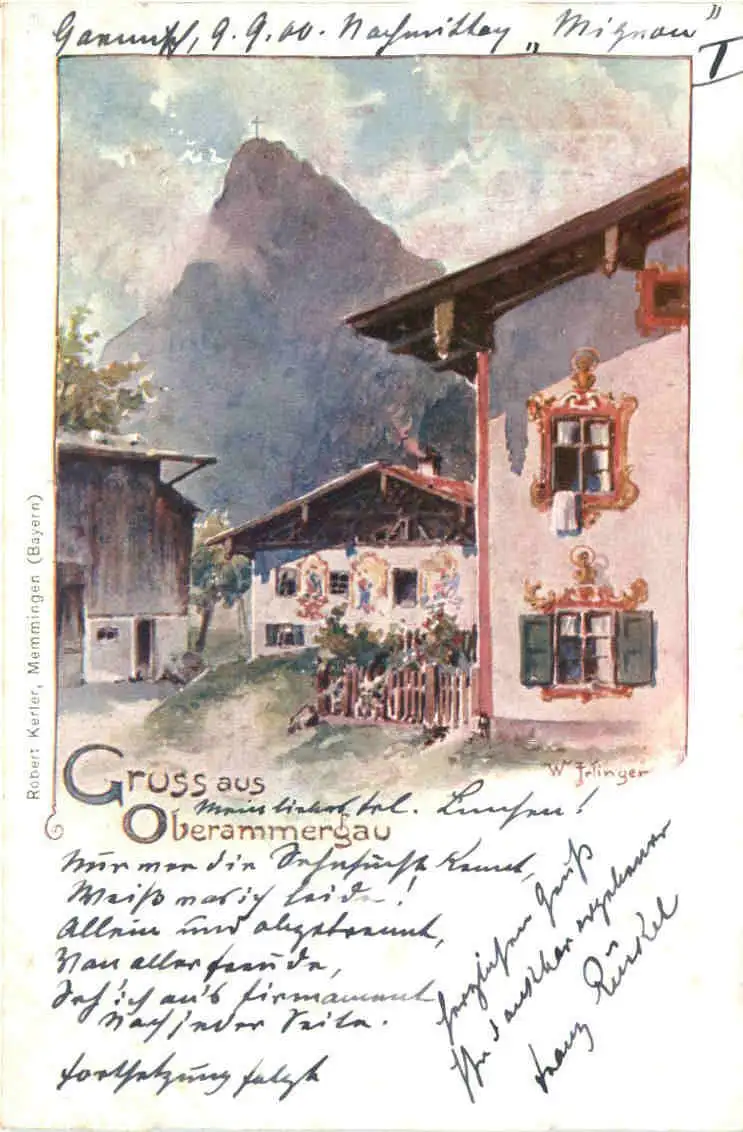 Garmisch, 9.9.00. Nachmittag „Mignon"
I
Robert Kerler, Memmingen (Bayern)
W Irlinger
Gruss aus
Oberammergau
Mein liebes Frl. !
Nur wer die Sehnsucht kennt,
Weiß was ich leide!
Allein und abgetrennt,
Von aller Freude,
Seh' ich an's Firmament
Nach jeder Seite.
Fortsetzung folgt
Herzlichen Gruß
Ihr dankbar ergebener
Franz